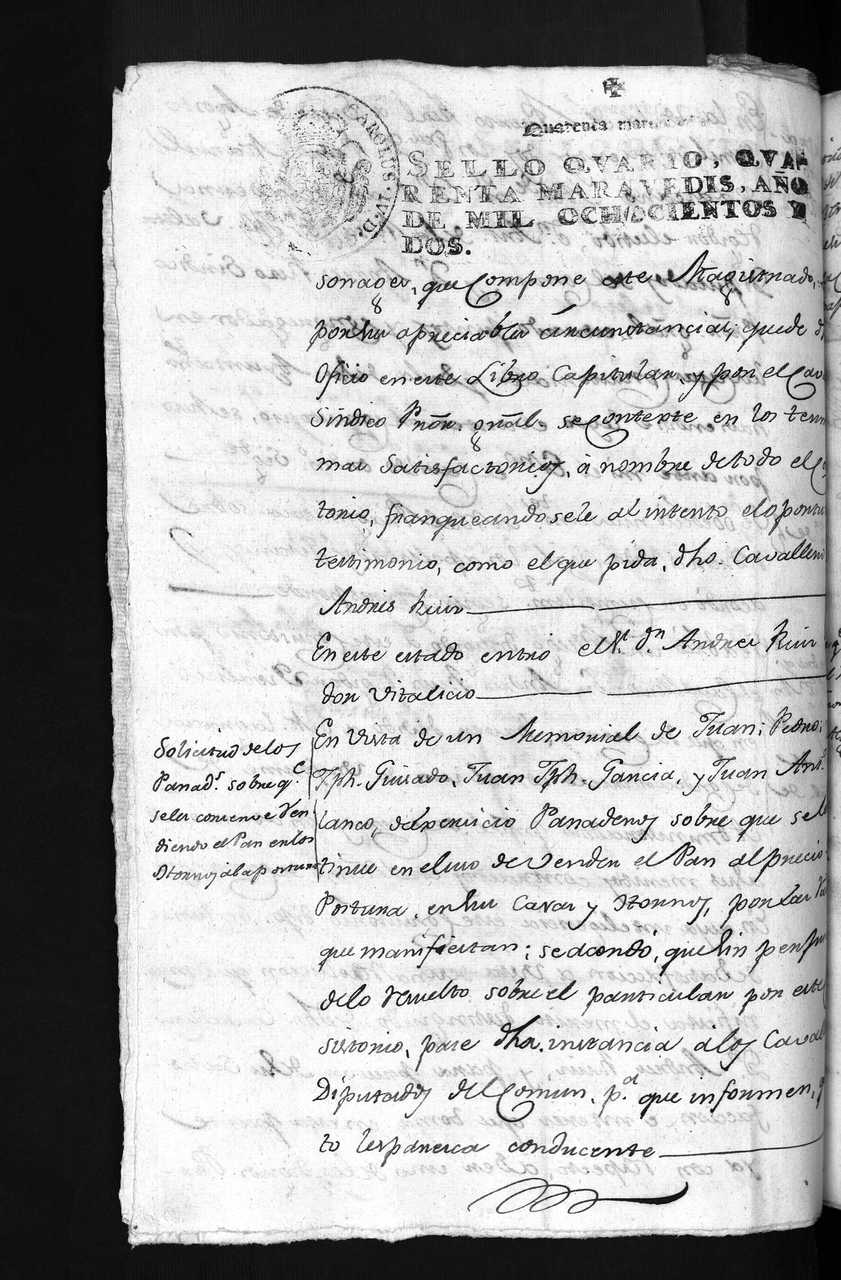 CAROLUS·IV·D·
Quarenta mara
SELLO QVARTO, QVA-
RENTA MARAVEDIS, AÑO
DE MIL OCHOCIENTOS Y
DOS.
sonages, que Compone este Magistrado,
por sus apreciables circunstancias; quede
Oficio en este Libro Capitular, y por el Cav
Síndico Prōr. grāl. se Conteste en los term
mas Satisfactorios, à nombre de todo el C
torio, franqueandosele al intento el oportu
testimonio, como el que pida, dho. Cavallero
Andres Ruiz
En este estado entró el Sr. dn. Andres Ruiz
don Vitalicio
Solicitud de los
Panads. sobre qe.
se les conserve Ven
diendo el Pan en los
Hornos a la postura
En Vista de un Memorial de Juan, Pedro,
Jph. Guisado, Juan Jph. Garcia, y Juan Ant.
lanco, de exercicio Panaderos sobre que se les
tinue en el uso de Vender el Pan al precio
Postura, en sus Casas y Hornos, por las
que manifiestan; se acordó, que sin perju
de lo resuelto sobre el particular por este
sistorio, pase dha. instancia a los Caval
Diputados del Comun, pa. que informen,
to les paresca conducente